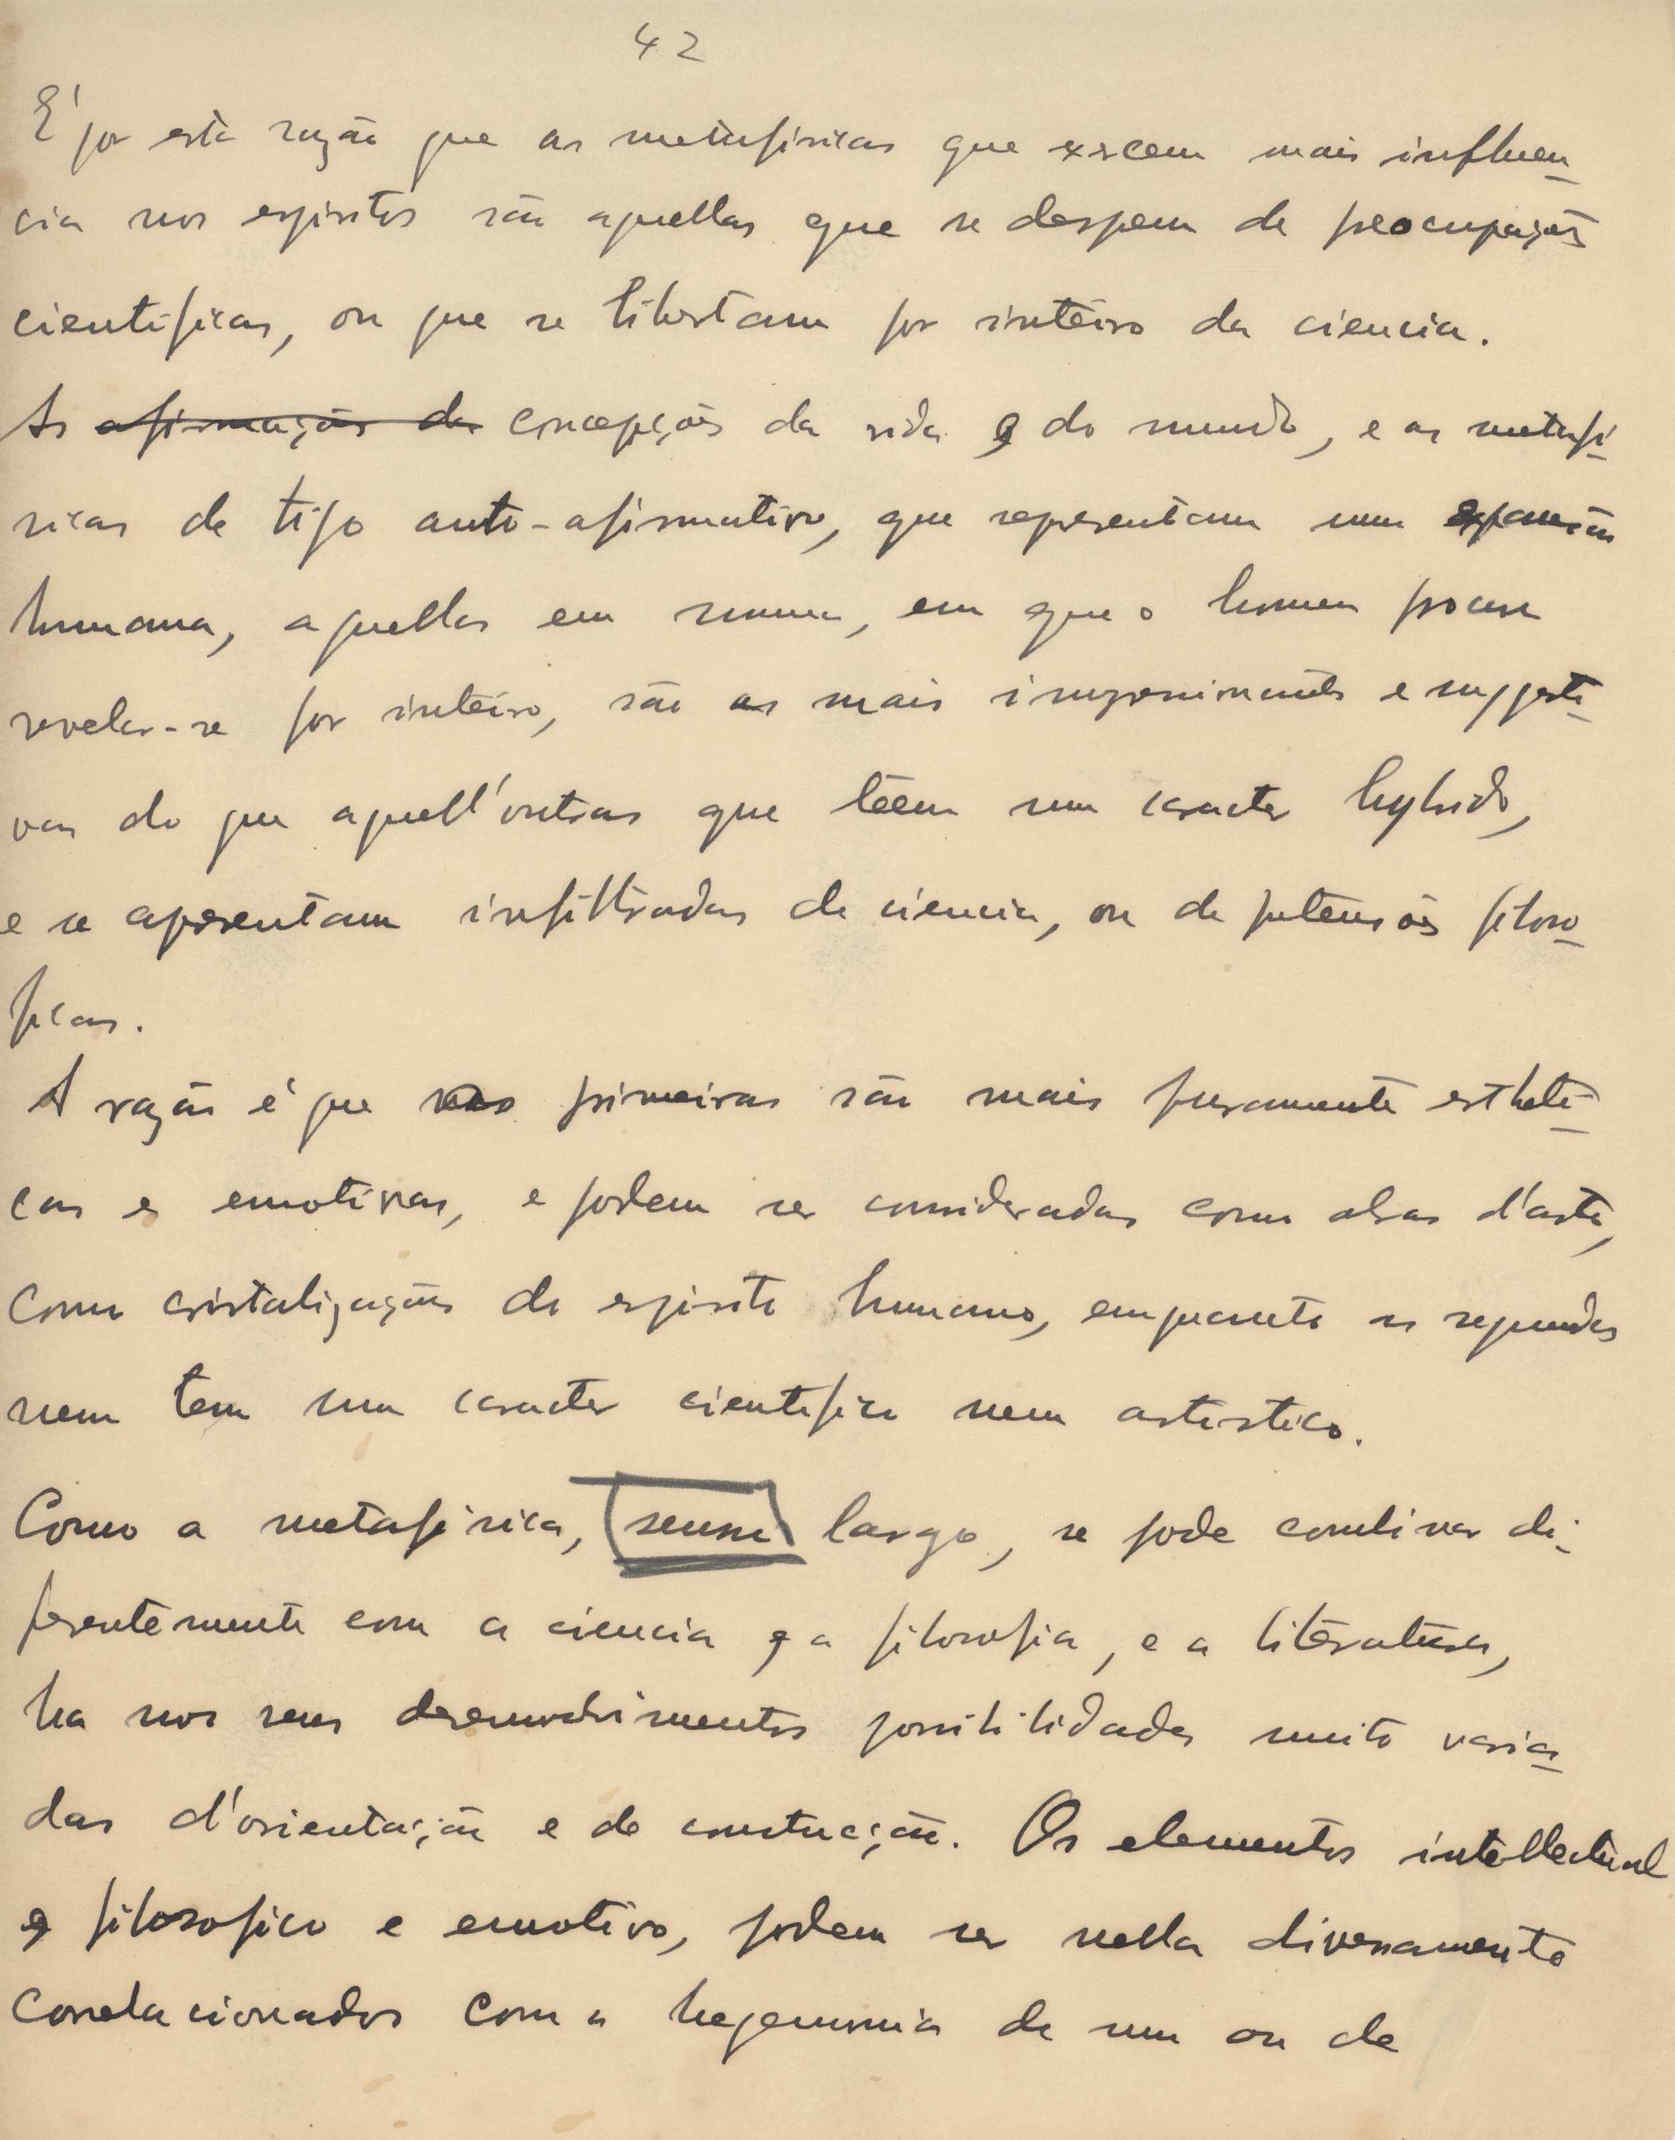 42
E' por esta razão que as metafisicas que excem mais influen-
cia nos espiritos são aquellas que se despem de preocupações
cientificas, ou que se libertam por inteiro da ciencia.
As afirmações da concepções da vida e do mundo, e as metafi-
sicas de tipo auto-afirmativo, que representam uma expansão
humana, aquellas em summa, em que o homem procura
revelar-se por inteiro, são as mais impressionantes e suggesti-
vas do que aquell'outras que têem um caracter hybrido,
e se apresentam infiltradas de ciencia, ou de pretensões filoso-
ficas.
A razão é que as primeiras são mais puramente estheti-
cas e emotivas, e podem ser consideradas como obras d'arte,
como cristalizações do espirito humano, emquanto as segundas
nem tem um caracter cientifico nem artistico.
Como a metafisica, sensu largo, se pode combinar di-
ferentemente com a ciencia e a filosofia, e a literatura,
ha nos seus desenvolvimentos possibilidades muito varia-
das d'orientação e de construcção. Os elementos intellectual
e filosofico e emotivo, podem ser nella diversamente
correlacionados com a hegemonia de um ou de